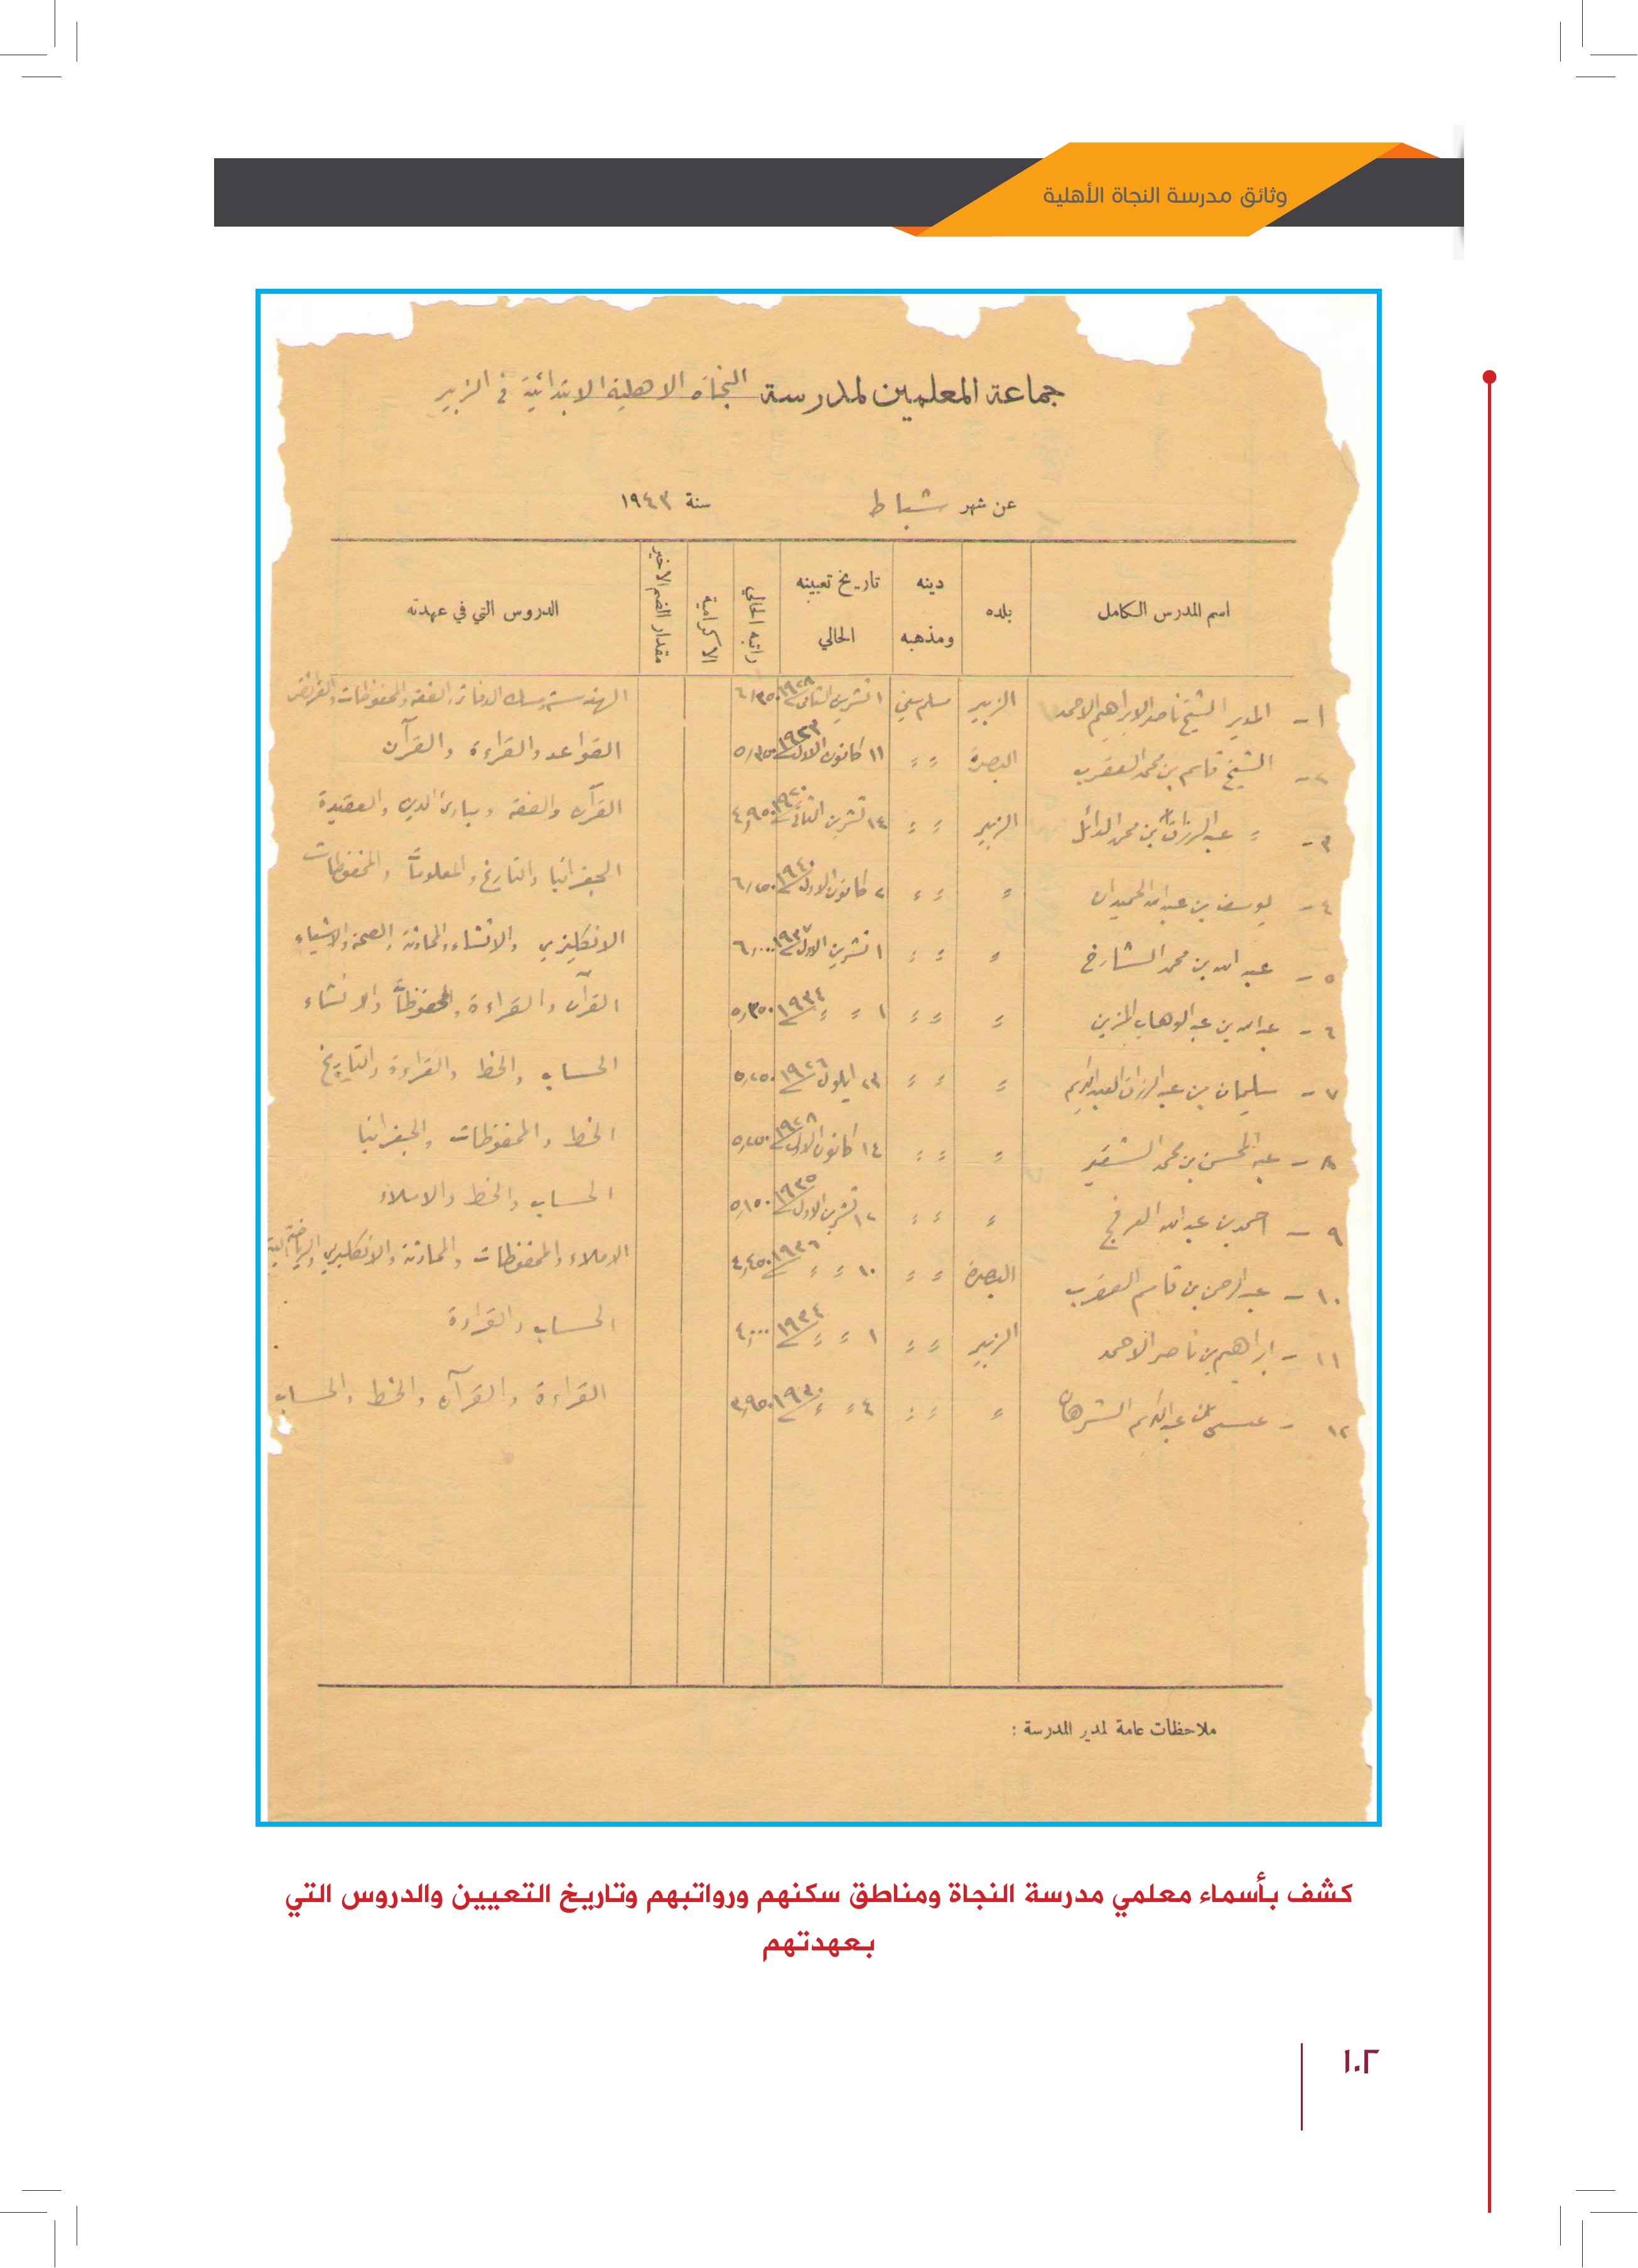 وثائق مدرسة النجاة الأهلية
جماعة المعلمين لمدرسة النجاة الاهلية الابتدائية في الزبير
عن شهر شباط سنة ١٩٤٣
اسم المدرس الكامل بلده دينه ومذهبه تاريخ تعيينه الحالي راتبه الحالي الاكرامية مقدار الضم الاخير الدروس التي في عهدته
١ - المدير الشيخ ناصر الابراهيم الاحمد الزبير مسلم سني ١ تشرين الثاني ١٩٢٨ ٦/٣٥٠ الهندسة ومسك الدفاتر والفقه والمحفوظات والفرائض
٢ - الشيخ قاسم بن محمد العقرب البصرة ״ ״ ١١ كانون الاول ١٩٢٣ ٥/٣٥٠ القواعد والقراءة والقرآن
٣ - ״ عبد الرزاق بن محمد الدائل الزبير ״ ״ ١٤ تشرين الثاني ١٩٢٠ ٤,٩٥٠ القرآن والفقه ومبادئ الدين والعقيدة
٤ - يوسف بن عبد الله الحميدان ״ ״ ״ ٢ كانون الاول ١٩٤٠ ٦/٢٥٠ الجغرافيا والتاريخ والمعلومات والمحفوظات
٥ - عبد الله بن محمد الشارخ ״ ״ ״ ١ تشرين الاول ١٩٣٧ ٦,٠٠٠ الانكليزي والانشاء والمحادثة والصحة والاشياء
٦ - عبد الله بن عبد الوهاب المزين ״ ״ ״ ١ ״ ״ ١٩٣٤ ٥,٣٥٠ القرآن والقراءة والمحفوظات والانشاء
٧ - سليمان بن عبد الرزاق العبد الكريم ״ ״ ״ ٢٣ ايلول ١٩٢٦ ٥,٢٥٠ الحساب والخط والقراءة والتاريخ
٨ - عبد المحسن بن محمد الشقير ״ ״ ״ ١٤ كانون الاول ١٩٢٨ ٥,٢٥٠ الخط والمحفوظات والجغرافيا
٩ - احمد بن عبد الله العرفج ״ ״ ״ ١٢ تشرين الاول ١٩٣٥ ٥,١٥٠ الحساب والخط والاملاء
١٠ - عبد الرحمن بن قاسم العقرب البصرة ״ ״ ١٠ ״ ״ ١٩٣٦ ٤,٤٥٠ الاملاء والمحفوظات والمحادثة والانكليزي والرياضة
١١ - ابراهيم بن ناصر الاحمد الزبير ״ ״ ١ ״ ״ ١٩٣٤ ٤,٠٠٠ الحساب والقراءة
١٢ - عيسى بن عبد الكريم الشرهان ״ ״ ״ ٤ ״ ״ ١٩٣٠ ٣,٩٥٠ القراءة والقرآن والخط والحساب
ملاحظات عامة لمدير المدرسة :
كشف بأسماء معلمي مدرسة النجاة ومناطق سكنهم ورواتبهم وتاريخ التعيين والدروس التي
بعهدتهم
١٠٢